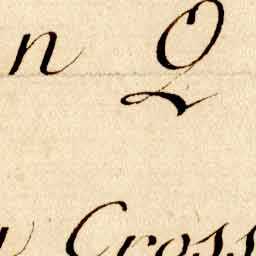 n Q
Cross